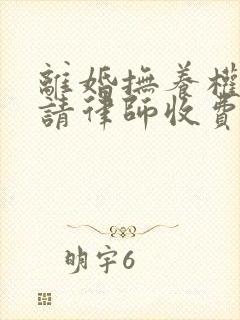 離婚撫養權
請律師收費
明宇6